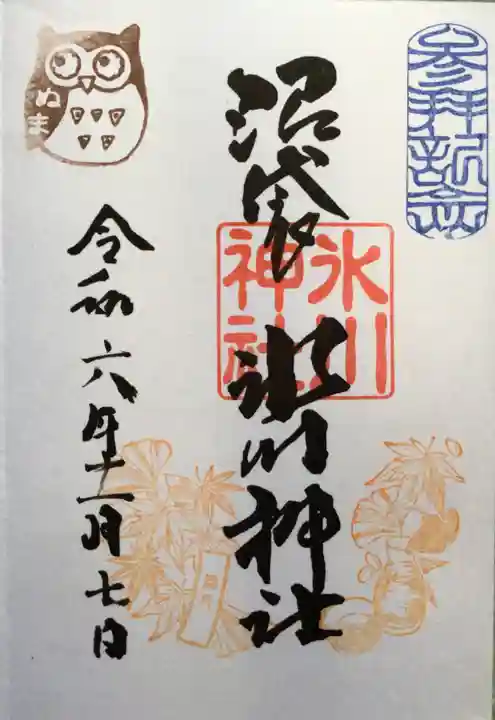 参拝記念
沼袋 氷川神社
氷川
神社
令和六年十一月七日
ぬま